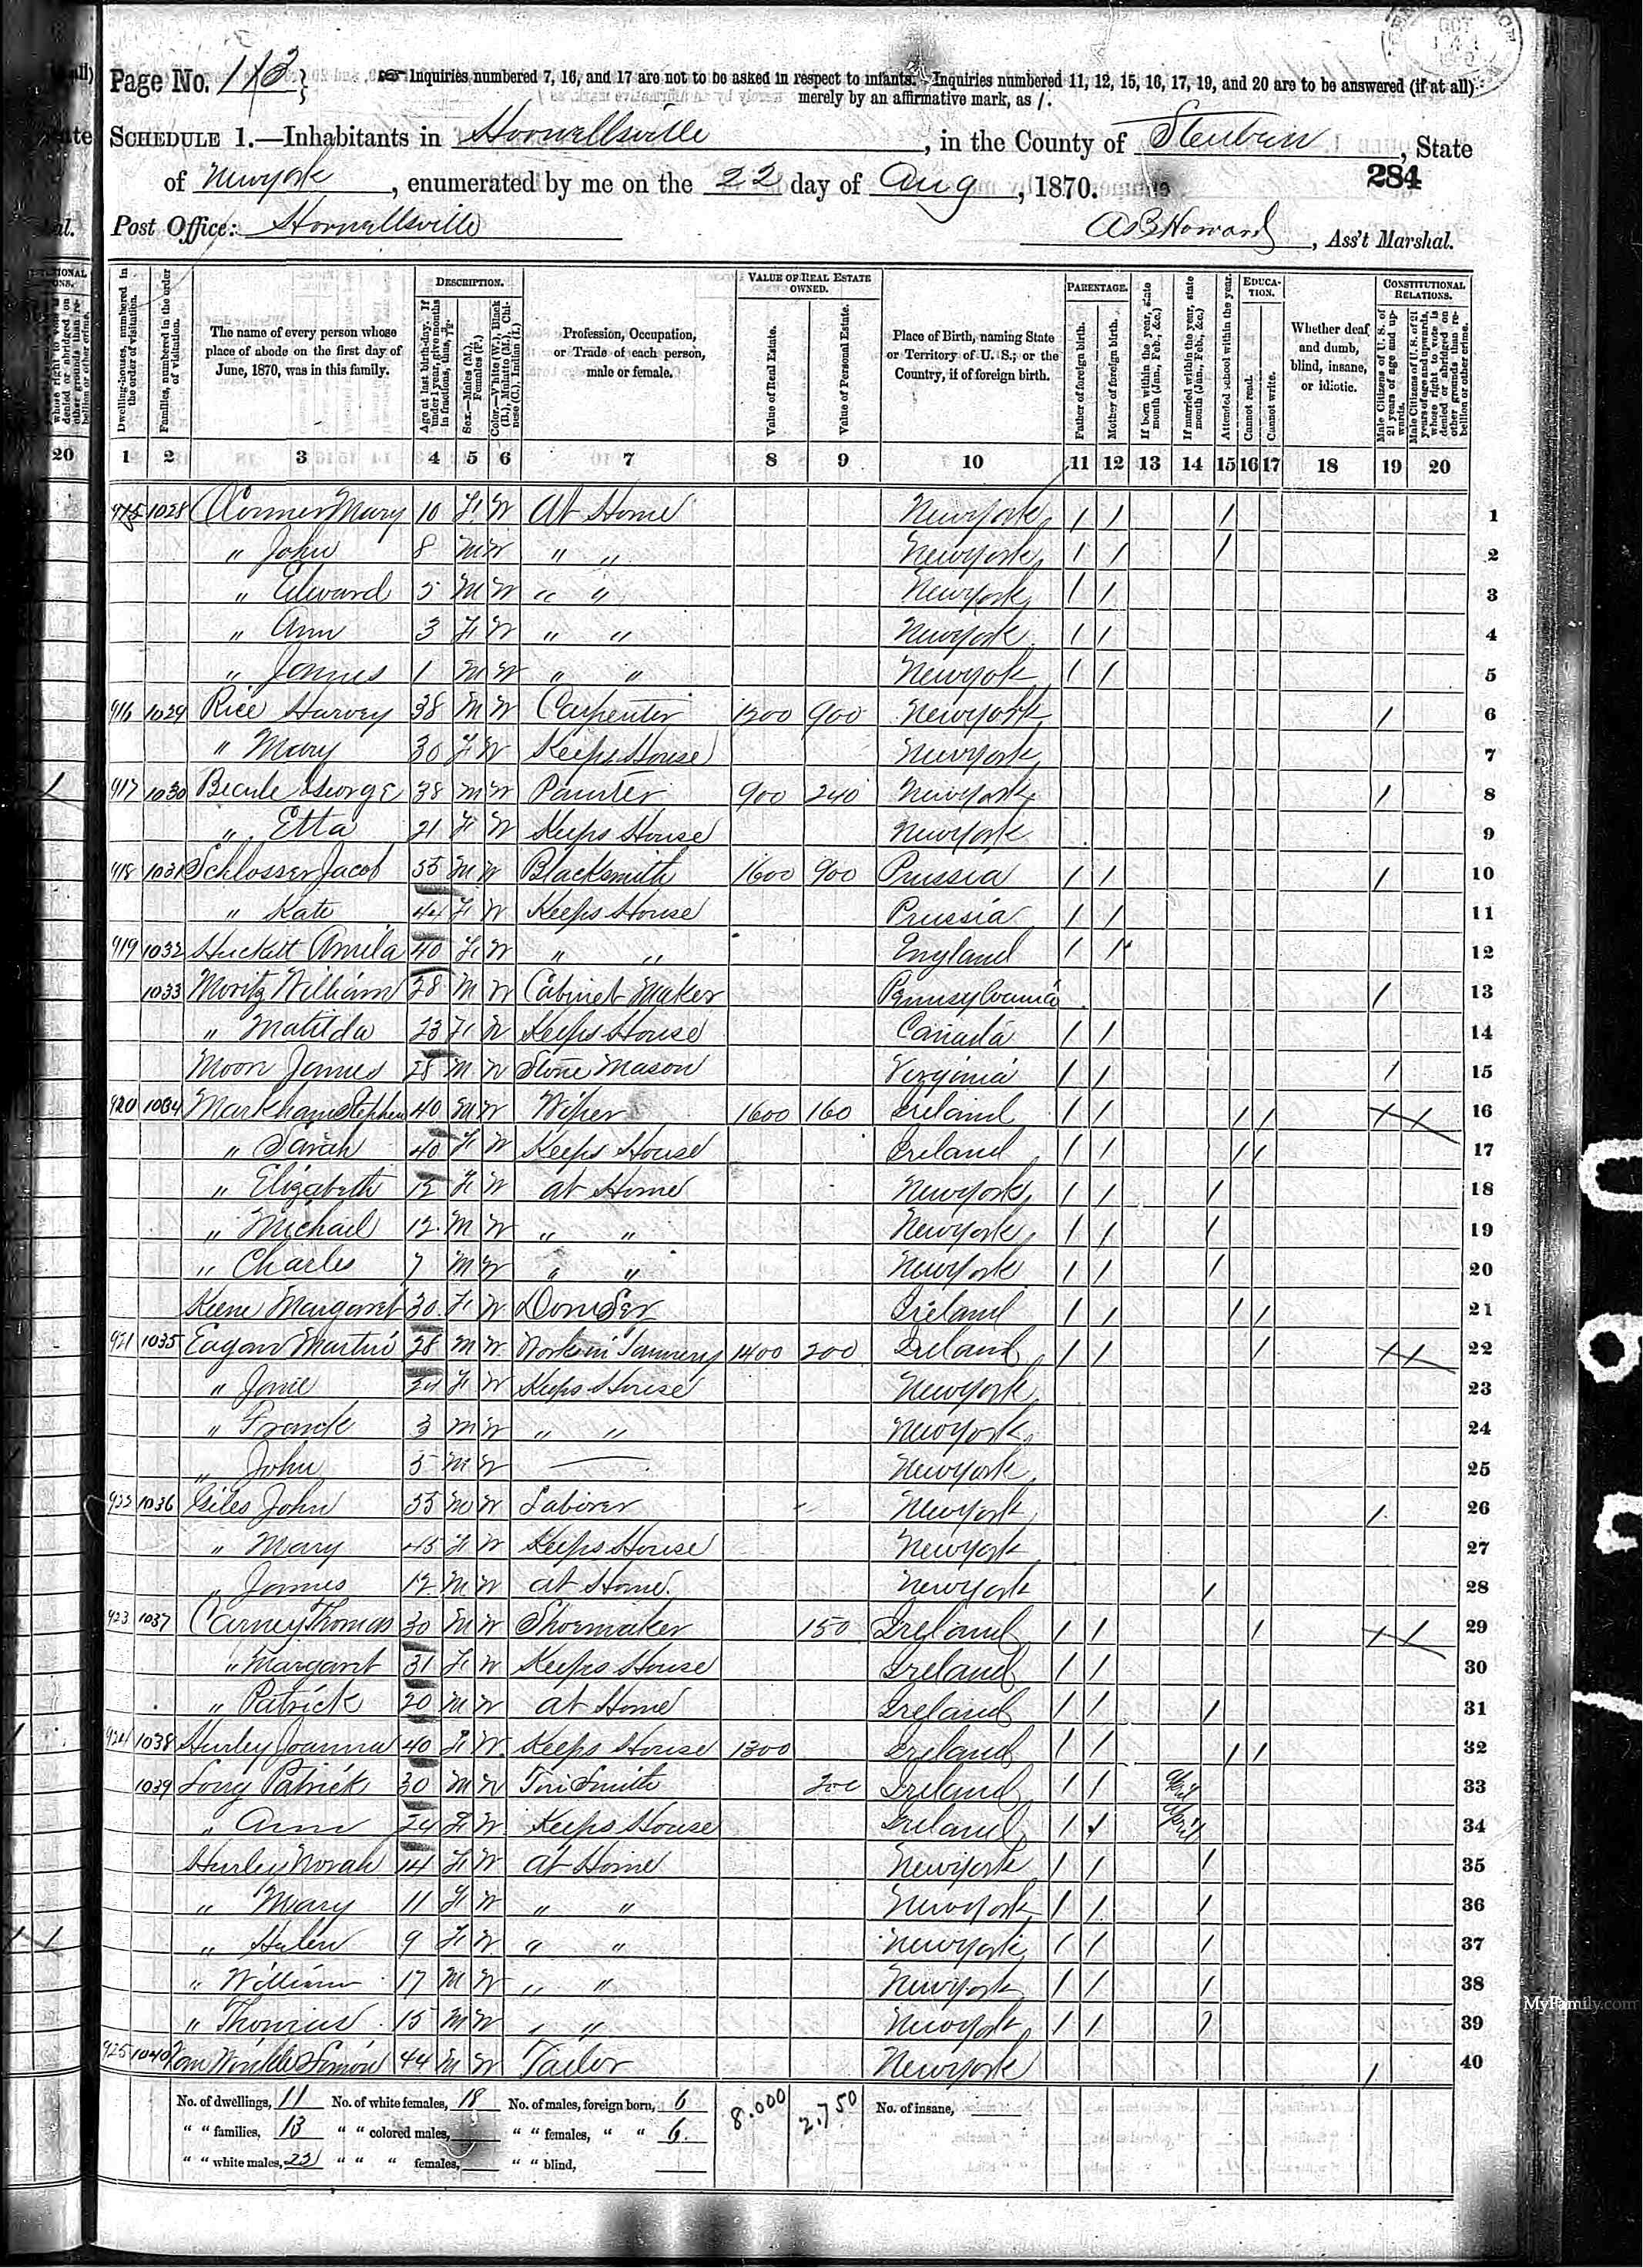 Page No. 113 } Inquiries numbered 7, 16, and 17 are not to be asked in respect to infants. Inquiries numbered 11, 12, 15, 16, 17, 19, and 20 are to be answered (if at all)
merely by an affirmative mark, as /.
SCHEDULE 1.—Inhabitants in Hornellsville, in the County of Steuben, State
284
of Newyork, enumerated by me on the 22 day of Aug, 1870.
Post Office: Hornellsville A B Howard, Ass't Marshal.
Dwelling-houses, numbered in the order of visitation.
Families, numbered in the order of visitation.
The name of every person whose place of abode on the first day of June, 1870, was in this family.
DESCRIPTION.
Age at last birth-day. If under 1 year, give months in fractions, thus, 3/12.
Sex.—Males (M.), Females (F.)
Color.—White (W.), Black (B.), Mulatto (M.), Chinese (C.), Indian (I.)
Profession, Occupation, or Trade of each person, male or female.
VALUE OF REAL ESTATE OWNED.
Value of Real Estate.
Value of Personal Estate.
Place of Birth, naming State or Territory of U. S.; or the Country, if of foreign birth.
PARENTAGE.
Father of foreign birth.
Mother of foreign birth.
If born within the year, state month (Jan., Feb., &c.)
If married within the year, state month (Jan., Feb., &c.)
Attended school within the year.
EDUCATION.
Cannot read.
Cannot write.
Whether deaf and dumb, blind, insane, or idiotic.
CONSTITUTIONAL RELATIONS.
Male Citizens of U. S. of 21 years of age and upwards.
Male Citizens of U. S. of 21 years of age and upwards, whose right to vote is denied or abridged on other grounds than rebellion or other crime.
20 1 2 3 4 5 6 7 8 9 10 11 12 13 14 15 16 17 18 19 20
915 1028 Conner Mary 10 F W At Home Newyork / / / 1
" John 8 M W " " Newyork / / / 2
" Edward 5 M W " " Newyork / / 3
" Ann 3 F W " " Newyork / / 4
" James 1 M W " " Newyok / / 5
916 1029 Rice Harvey 38 M W Carpenter 1200 900 Newyork / 6
" Mary 30 F W Keeps House Newyork 7
917 1030 George 38 M W Painter 900 240 Newyork / 8
" Etta 21 F W Keeps House Newyork 9
918 1031 Schlosser Jacob 55 M W Blacksmith 1600 900 Prussia / / / 10
" Kate 44 F W Keeps House Prussia / / 11
919 1032 Amila 40 F W " " England / / 12
1033 Moritz William 28 M W Cabinet Maker Pennsylvania / 13
" Matilda 23 F W Keeps House Canada / / 14
Moon James 28 M W Stone Mason Virginia / / / 15
920 1034 Markham Stephen 40 M W Wiper 1600 160 Ireland / / / / / / 16
" Sarah 40 F W Keeps House Ireland / / / / 17
" Elizabeth 12 F W at Home Newyork / / / 18
" Michael 12 M W " " Newyork / / / 19
" Charles 7 M W " " Newyork / / / 20
Keene Margaret 30 F W Dom Ser Ireland / / / / 21
921 1035 Eagan Martin 28 M W Works in Tannery 1400 200 Ireland / / / / / 22
" Jane 24 F W Keeps House Newyork 23
" Franck 3 M W " " Newyork 24
" John 5 M W Newyork 25
922 1036 Giles John 55 M W Laborer Newyork / 26
" Mary 45 F W Keeps House Newyork 27
" James 12 M W at Home Newyork / 28
923 1037 Carney Thomas 30 M W Shoemaker 150 Ireland / / / / / 29
" Margaret 31 F W Keeps House Ireland / / 30
" Patrick 20 M W at Home Ireland / / / 31
924 1038 Hurley Joanna 40 F W Keeps House 1300 Ireland / / / / 32
1039 Long Patrick 30 M W Tin Smith 200 Ireland / / April 33
" Ann 24 F W Keeps House Ireland / / April 34
Hurley Norah 14 F W at Home Newyork / / / 35
" Mary 11 F W " " Newyork / / / 36
" Helen 9 F W " " Newyork / / / 37
" William 17 M W " " Newyork / / / 38
" Thomas 15 M W " " Newyork / / / 39
925 1040 Van Winkle Simon 44 M W Tailor Newyork / 40
No. of dwellings, 11 No. of white females, 18 No. of males, foreign born, 6 8.000 2.750 No. of insane,
" " families, 13 " " colored males, " " females, " " 6
" " white males, 22 " " " females, " " blind,
MyFamily.com